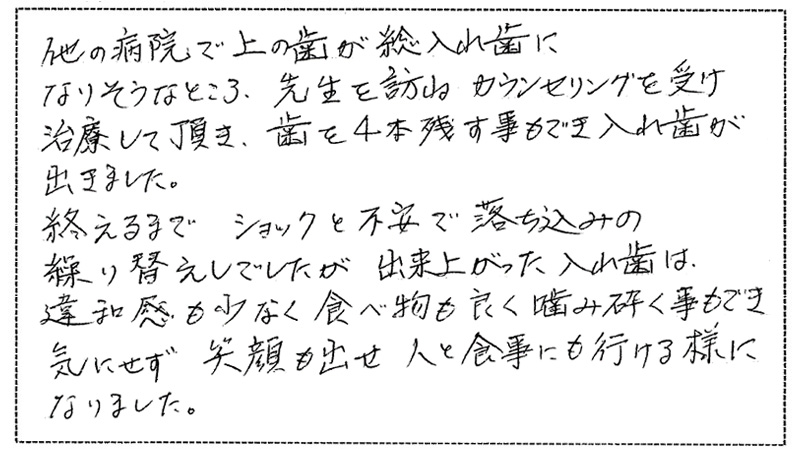 他の病院で上の歯が総入れ歯に
なりそうなところ、先生を訪ね カウンセリングを受け
治療して頂き、歯を4本残す事もでき入れ歯が
出きました。
終えるまで ショックと不安で落ち込みの
繰り替えしでしたが 出来上がった入れ歯は、
違和感も少なく食べ物も良く噛み砕く事もでき
気にせず 笑顔も出せ 人と食事にも行ける様に
なりました。